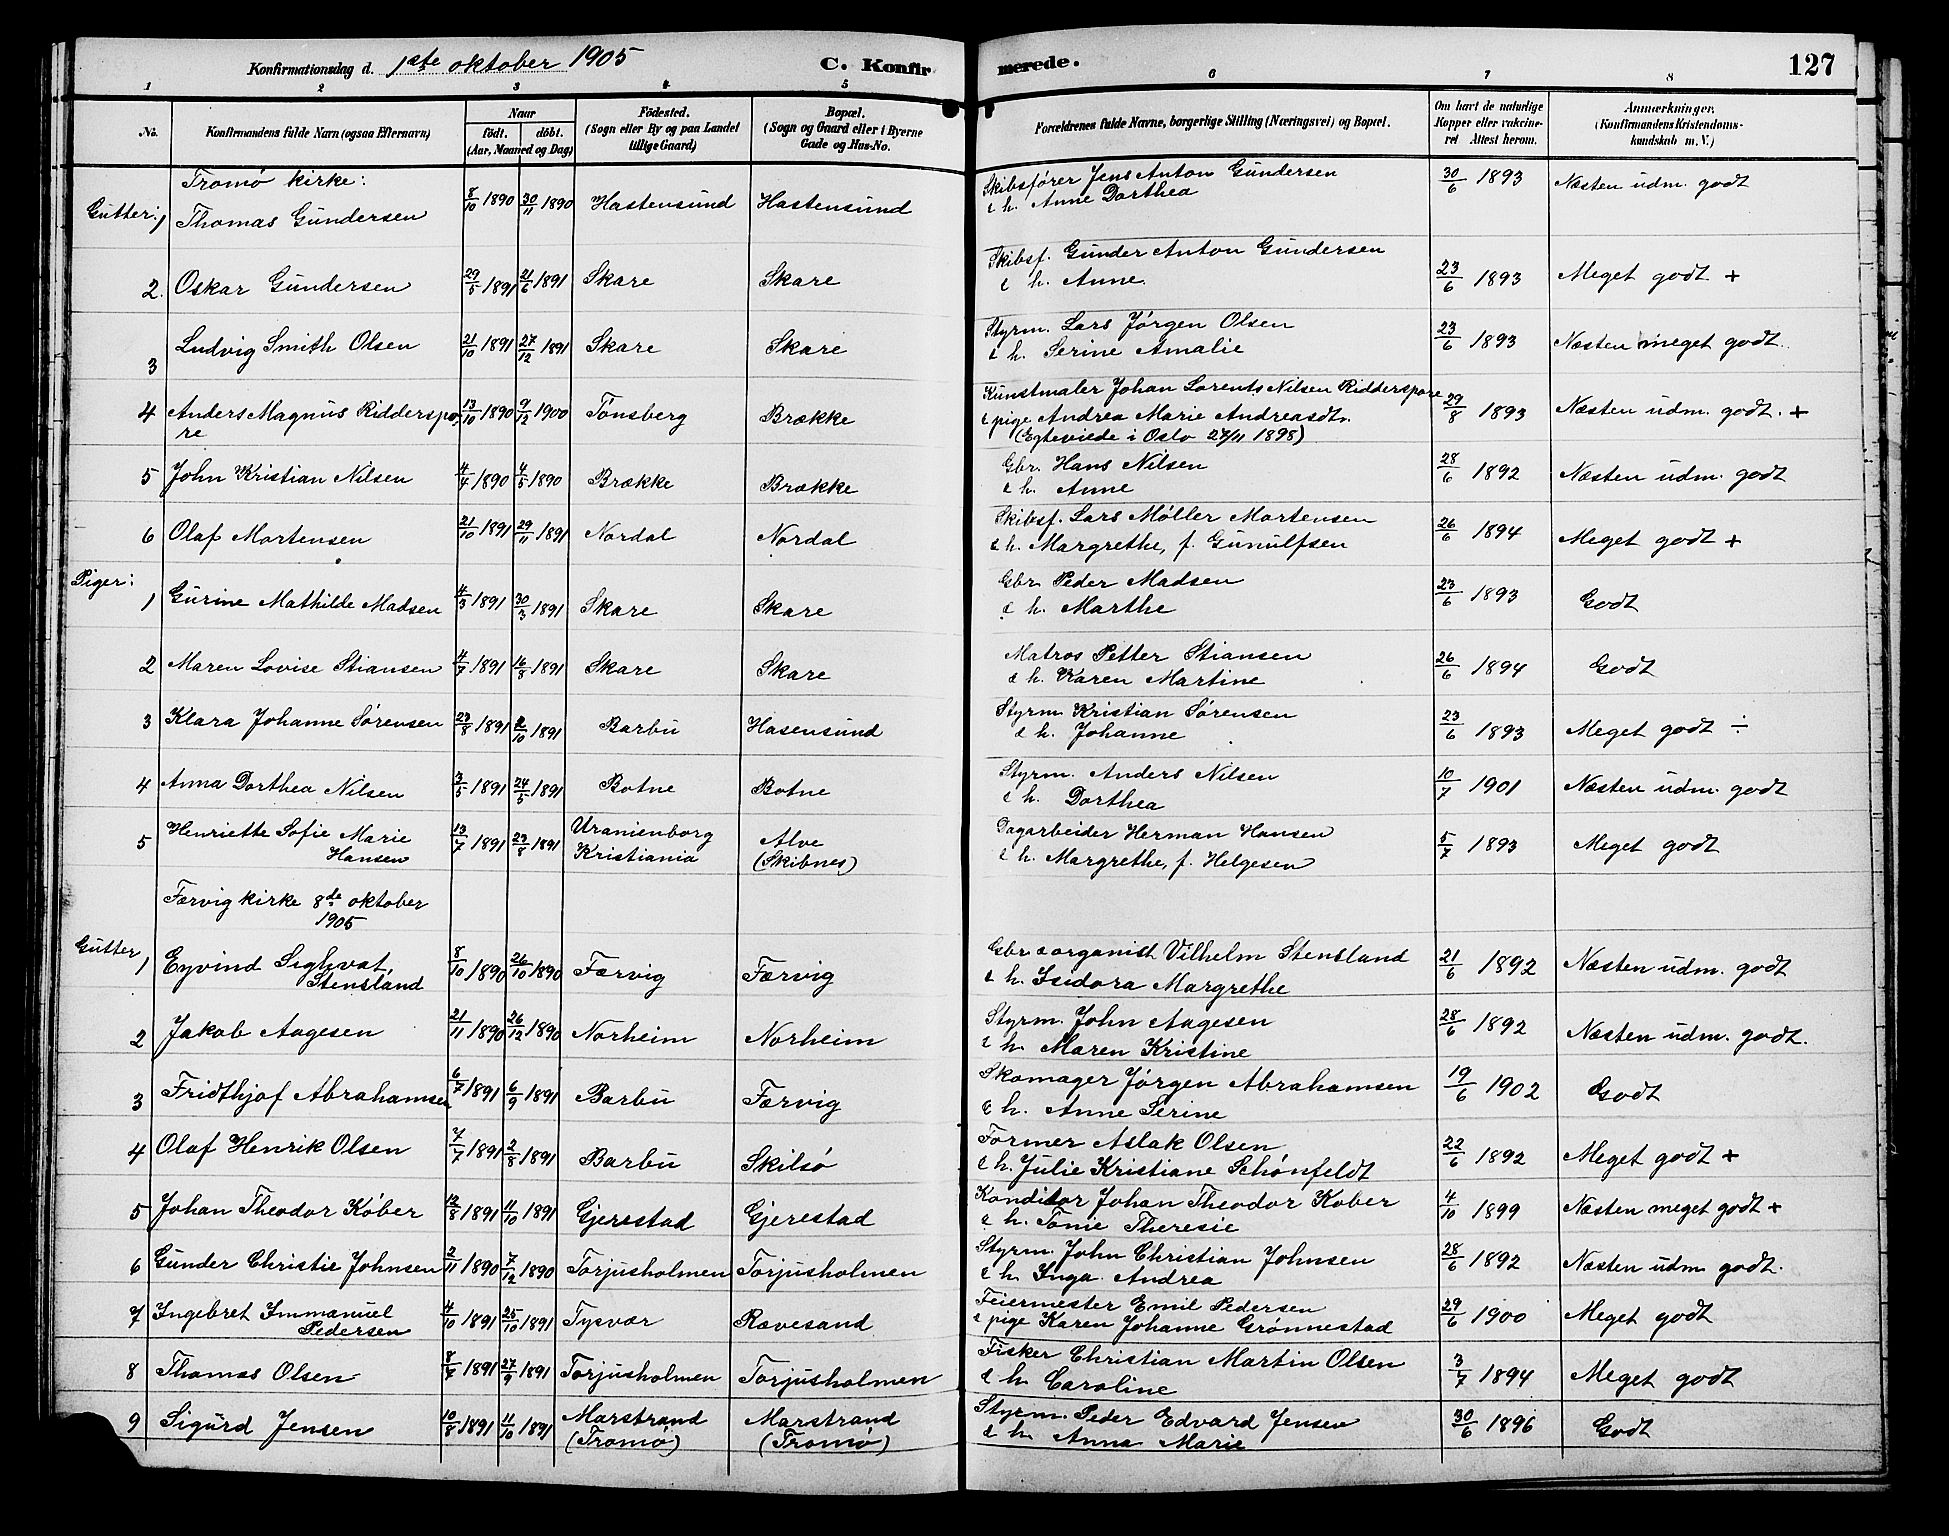 Konfirmationsdag d. 1ste oktober 1905 C. Konfir merede. 127
1 2 3 4 5 6 7 8
No. Konfirmandens fulde Navn (ogsaa Efternavn) Naar født. døbt. (Aar, Maaned og Dag) Födested. (Sogn eller By og paa Landet tillige Gaard) Bopæl. (Sogn og Gaard eller i Byerne Gade og Hus-No. Forældrenes fulde Navne, borgerlige Stilling (Næringsvei) og Bopæl. Om havt de naturlige Kopper eller vakcineret Attest herom. Anmærkninger. (Konfirmandens Kristendomskundskab m. V.)
Tromø kirke:
Gutter: 1 Thomas Gundersen 8/10 1890 30/11 1890 Hastensund Hastensund Skibsfører Jens Anton Gundersen 30/6 1893 Næsten udm. godt
& h. Anne Dorthea
2. Oskar Gundersen 29/5 1891 21/6 1891 Skare Skare Skibsf. Gunder Anton Gundersen 23/6 1893 Meget godt +
& h. Anne.
3 Ludvig Smith Olsen 21/10 1891 27/12 1891 Skare Skare Styrm. Lars Jørgen Olsen 23/6 1893 Næsten meget godt.
& h. Serine Amalie
4 Anders Magnus Ridderspo- 13/10 1890 9/12 1900 Tønsberg Brække Kunstmaler Johan Lorents Nilsen Ridderspore 29/8 1893 Næsten udm. godt. +
re & pige Andrea Marie Andreasdt.
(Egteviede i Oslo 27/11 1898)
5 John Kristian Nilsen 4/4 1890 4/5 1890 Brække Brække Gbr. Hans Nilsen 28/6 1892 Næsten udm. godt
& h. Anne
6 Olaf Mortensen 21/10 1891 29/11 1891 Nordal Nordal Skibsf. Lars Møller Mortensen 26/6 1894 Meget godt +
& h. Margrethe, f. Gunulfsen
Piger: 1 Gurine Mathilde Madsen 4/3 1891 30/3 1891 Skare Skare Gbr. Peder Madsen 23/6 1893 Godt
& h. Marthe
2 Maren Lovise Stiansen 4/7 1891 16/8 1891 Skare Skare Matros Petter Stiansen 26/6 1894 Godt
& h. Karen Martine
3 Klara Johanne Sørensen 23/8 1891 /10 1891 Barbu Hasensund Styrm. Kristian Sørensen 23/6 1893 Meget godt ÷
& h. Johanne
4 Anna Dorthea Nilsen 3/5 1891 24/5 1891 Botne Botne Styrm. Anders Nilsen 10/7 1901 Næsten udm. godt
& h. Dorthea
5 Henriette Sofie Marie 13/7 1891 23/8 1891 Uranienborg Alve Dagarbeider Herman Hansen 5/7 1893 Meget godt
Hansen Kristiania (Skibnes) & h. Margrethe, f. Helgesen
Færvig kirke 8de oktober
1905
Gutter, 1 Eyvind Sighvat 8/10 1890 26/10 1890 Færvig Færvig Gbr. & organist Vilhelm Stensland 21/6 1892 Næsten udm. godt
Stensland & h. Isidora Margrethe
2 Jakob Aagesen 21/11 1890 26/12 1890 Norheim Norheim Styrm. John Aagesen 28/6 1892 Næsten udm. godt.
& h. Maren Kristine
3 Fridthjof Abrahamsen 6/7 1891 6/9 1891 Barbu Færvig Skomager Jørgen Abrahamsen 19/6 1902 Godt
& h. Anne Serine
4 Olaf Henrik Olsen 7/7 1891 2/8 1891 Barbu Skilsø Former Aslak Olsen 22/6 1892 Meget godt +
& h. Julie Kristiane Schønfeldt
5 Johan Theodor Kober 12/8 1891 11/10 1891 Gjerestad Gjerestad Konditor Johan Theodor Kober 4/10 1899 Næsten meget godt +
& h. Tonie Theresie
6 Gunder Christie Johnsen 2/11 1890 7/12 1890 Torjusholmen Torjusholmen Styrm. John Christian Johnsen 28/6 1892 Næsten udm. godt.
& h. Inga Andrea
7 Ingebret Immanuel 4/10 1891 25/10 1891 Tysvær Rævesand Feiermester Emil Pedersen 29/6 1900 Meget godt
Pedersen & pige Karen Johanne Grønnestad
8 Thomas Olsen 8/7 1891 27/9 1891 Torjusholmen Torjusholmen Fisker Christian Martin Olsen 3/7 1894 Meget godt
& h. Caroline
9 Sigurd Jensen 10/8 1891 11/10 1891 Marstrand Marstrand Styrm. Peder Edvard Jensen 30/6 1896 Godt
(Tromø) (Tromø) & h. Anna Marie